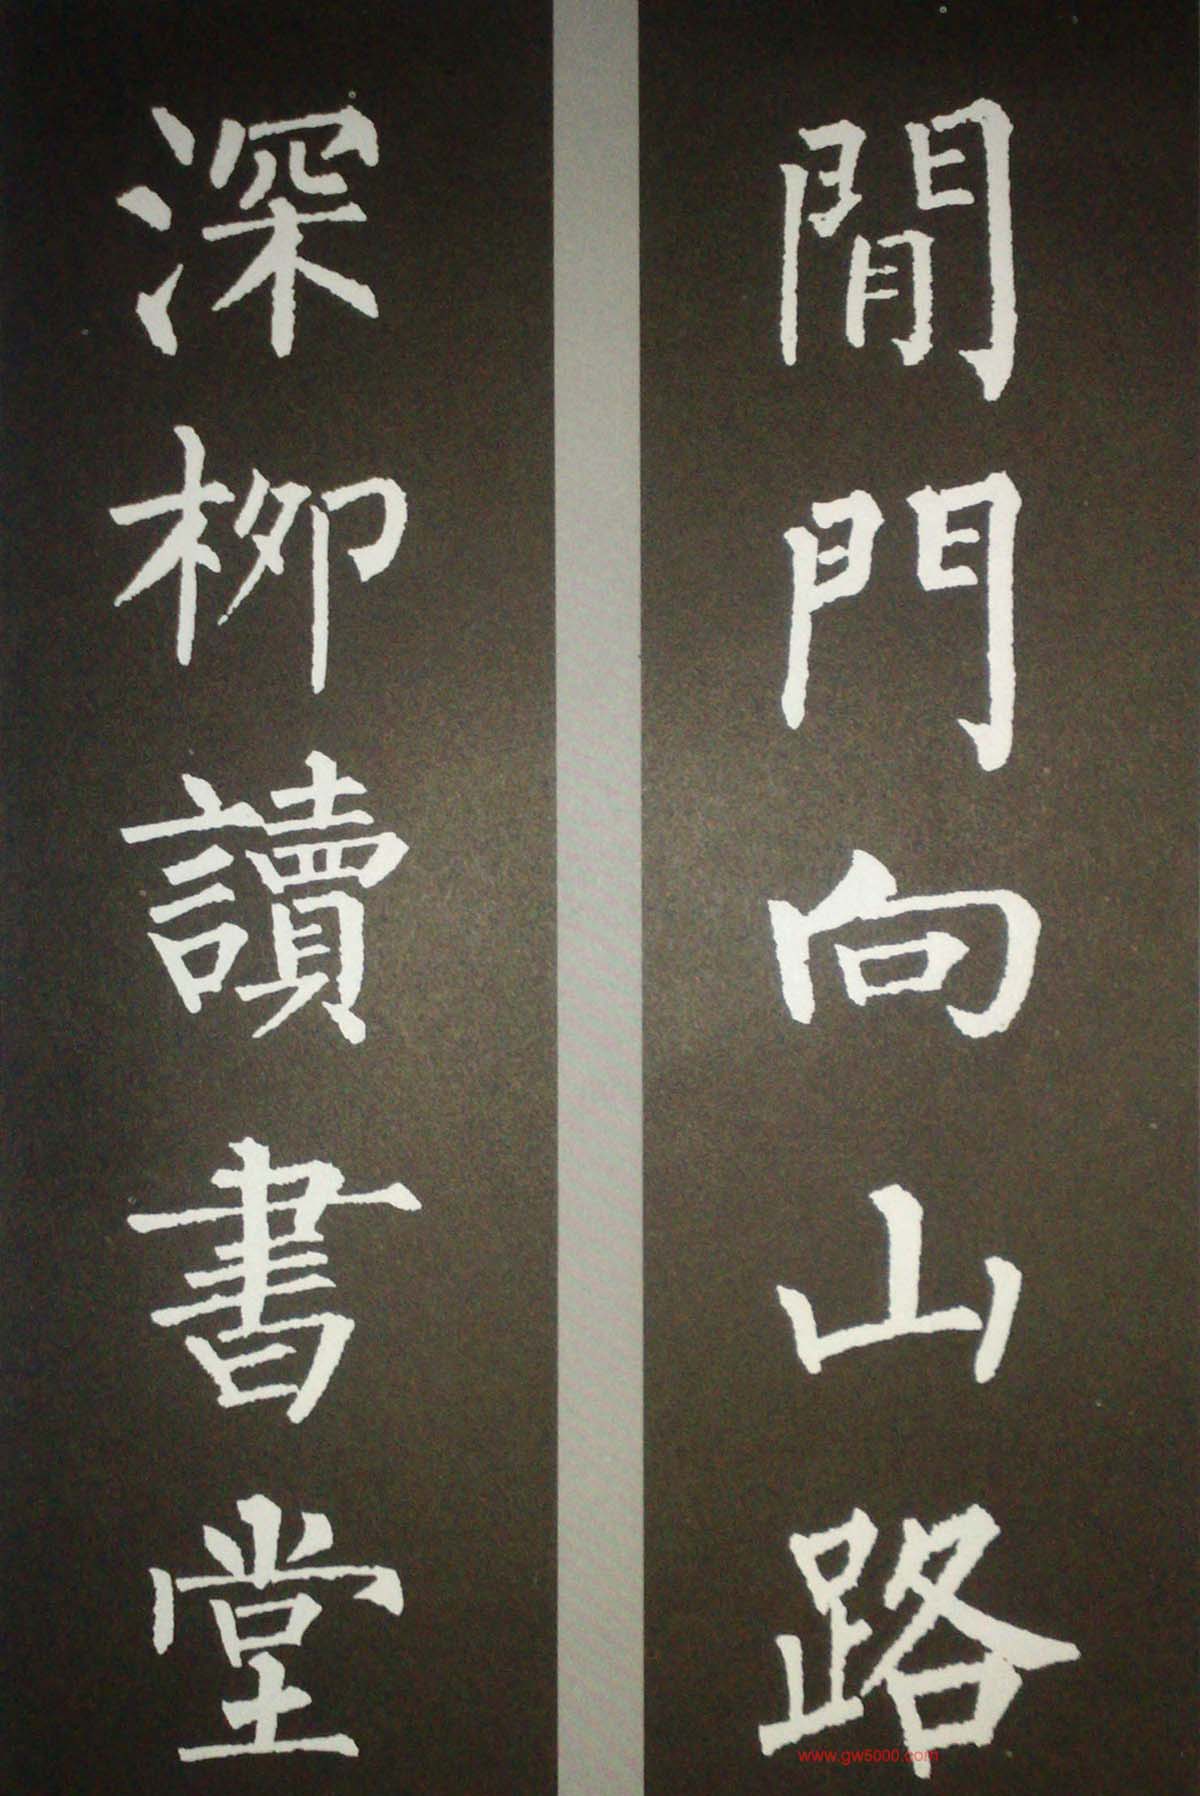 閒門向山路
深柳讀書堂
www.gw5000.com